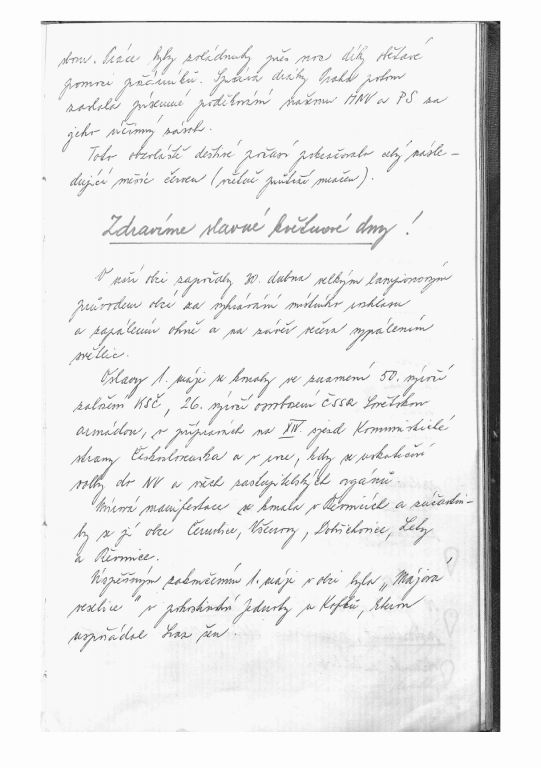 dem. Práce byly zvládnuty přes noc díky obětavé
pomoci požárníků. Správa dráhy Praha potom
zaslala písemné poděkování našemu MNV a PS za
jeho účinný zásah.
Toto obzvláště deštivé počasí pokračovalo celý násle-
dující měsíc červen (včetně průtrží mračen).
Zdravíme slavné květnové dny!
V naší obci započaly 30. dubna velkým lampionovým
průvodem obcí za vyhrávání místního rozhlasu
a zapálením ohně a na závěr večera vypálením
světlic.
Oslavy 1. máje se konaly ve znamení 50. výročí
založení KSČ, 26. výročí osvobození ČSSR Sovětskou
armádou, v přípravách na XIV. sjezd Komunistické
strany Československa a v roce, kdy se uskuteční
volby do NV a všech zastupitelských orgánů.
Mírová manifestace se konala v Řevnicích a zúčastni-
ly se jí obce Černolice, Všenory, Dobřichovice, Lety
a Řevnice.
Úspěšným zakončením 1. máje v obci byla „Májová
veselice" v pohostinství Jednoty u Kafků, kterou
uspořádal Svaz žen.